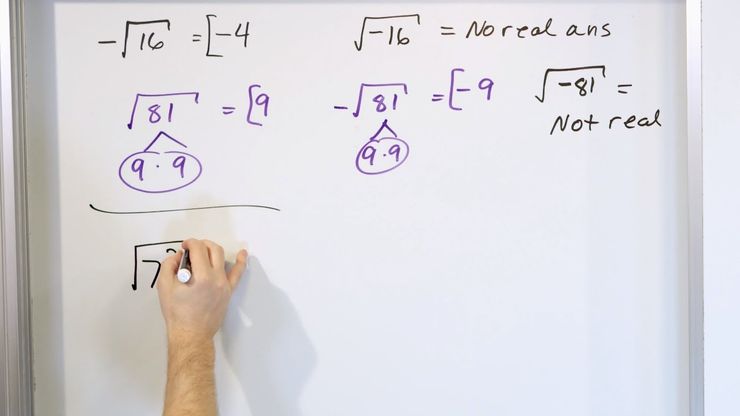 -√16 = [-4 √-16 = No real ans
√81 = [9 -√81 = [-9 √-81 =
Not real
9 · 9 9·9
√7